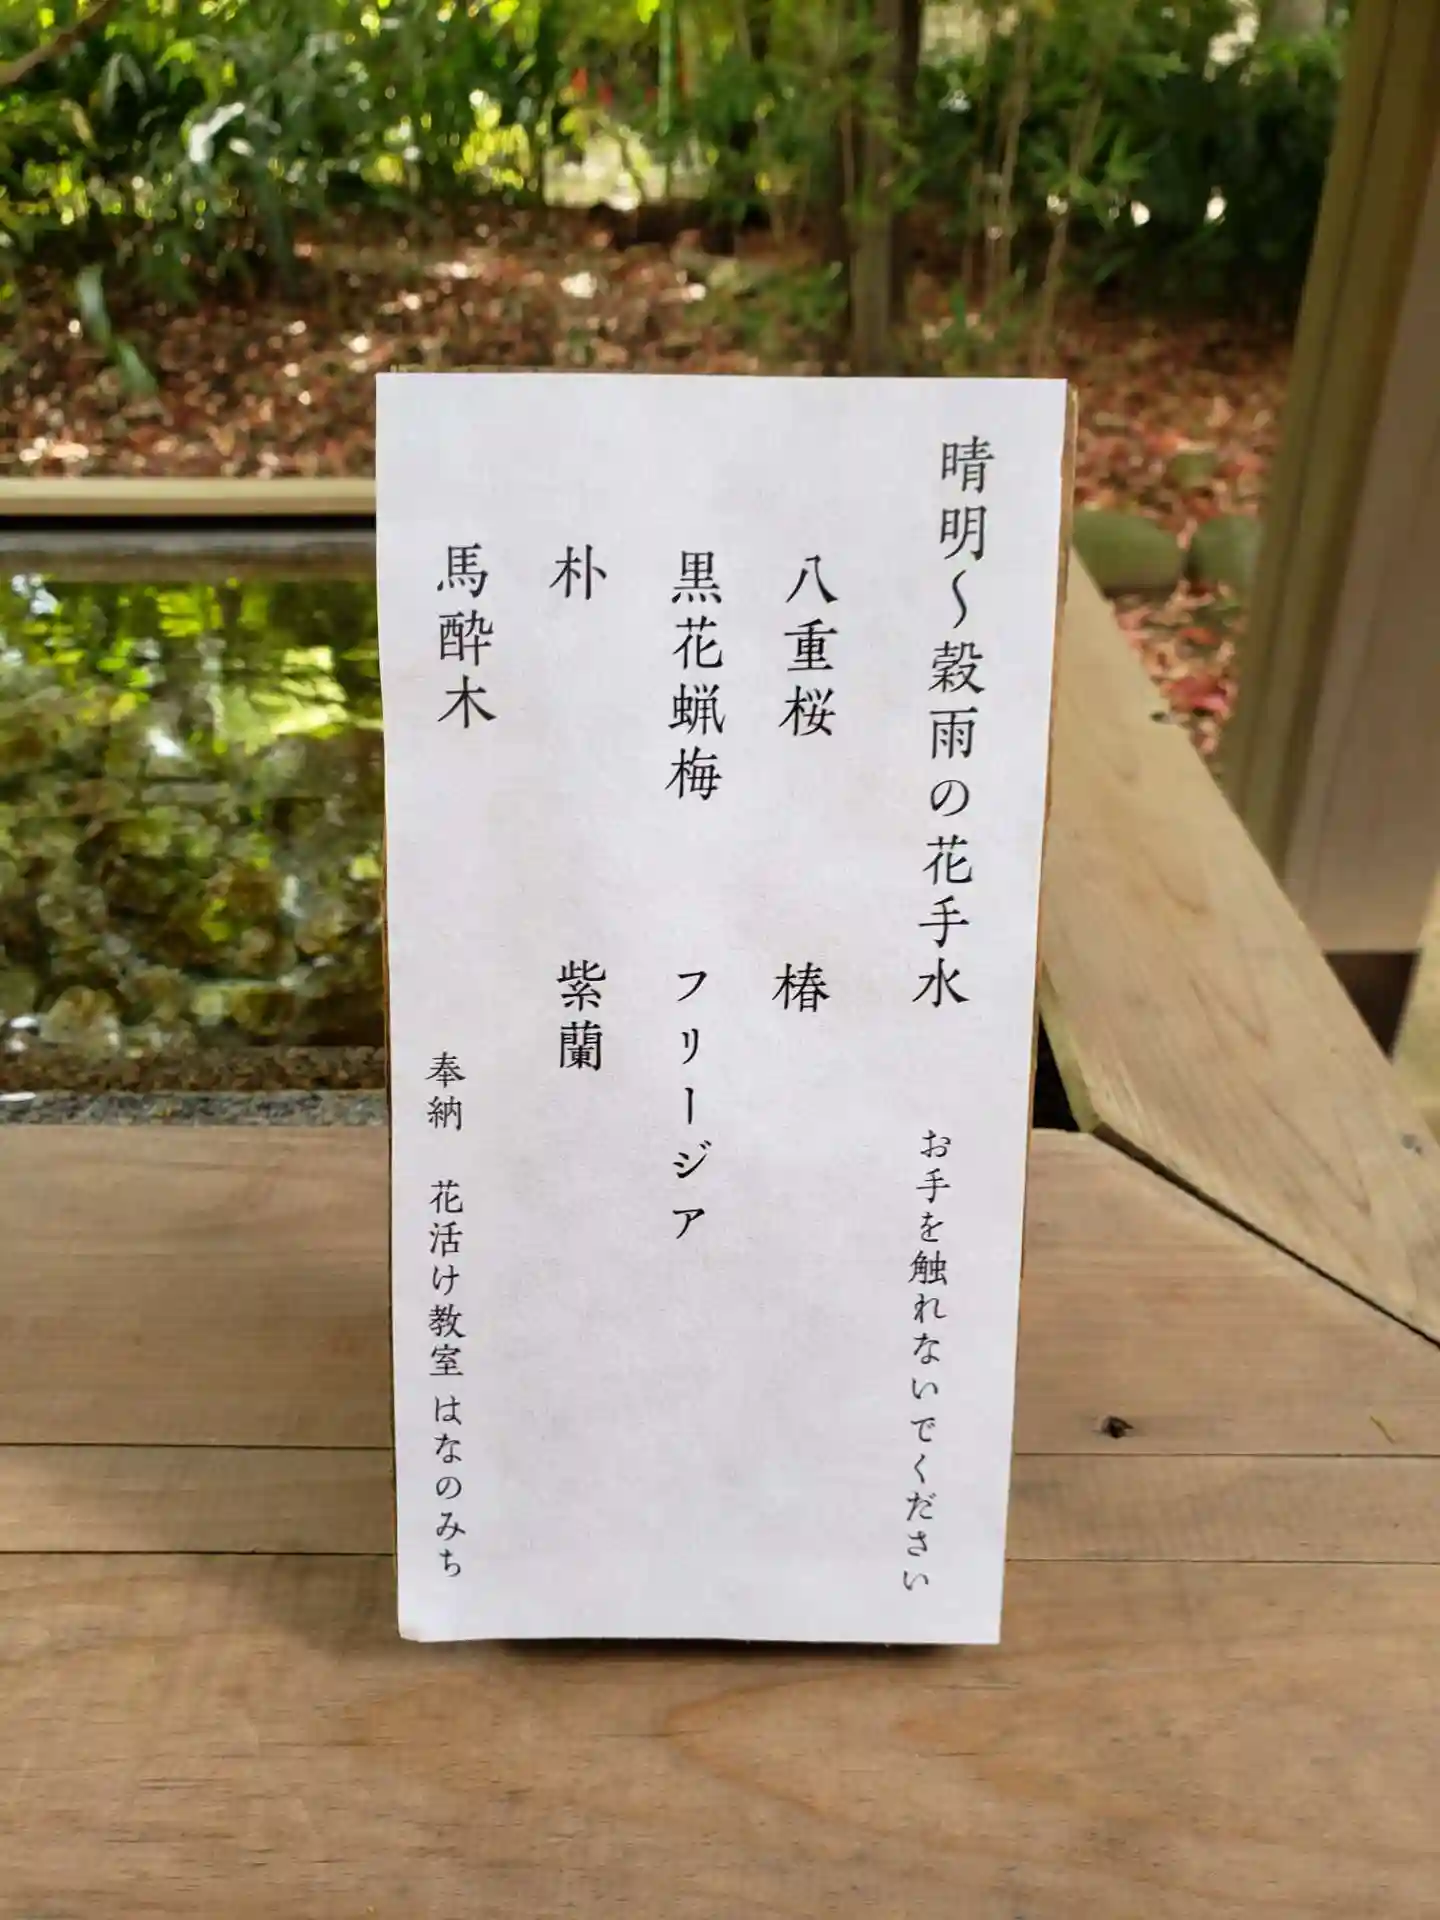 晴明～穀雨の花手水 お手を触れないでください
八重桜 椿
黒花蝋梅 フリージア
朴 紫蘭
馬酔木
奉納 花活け教室 はなのみち